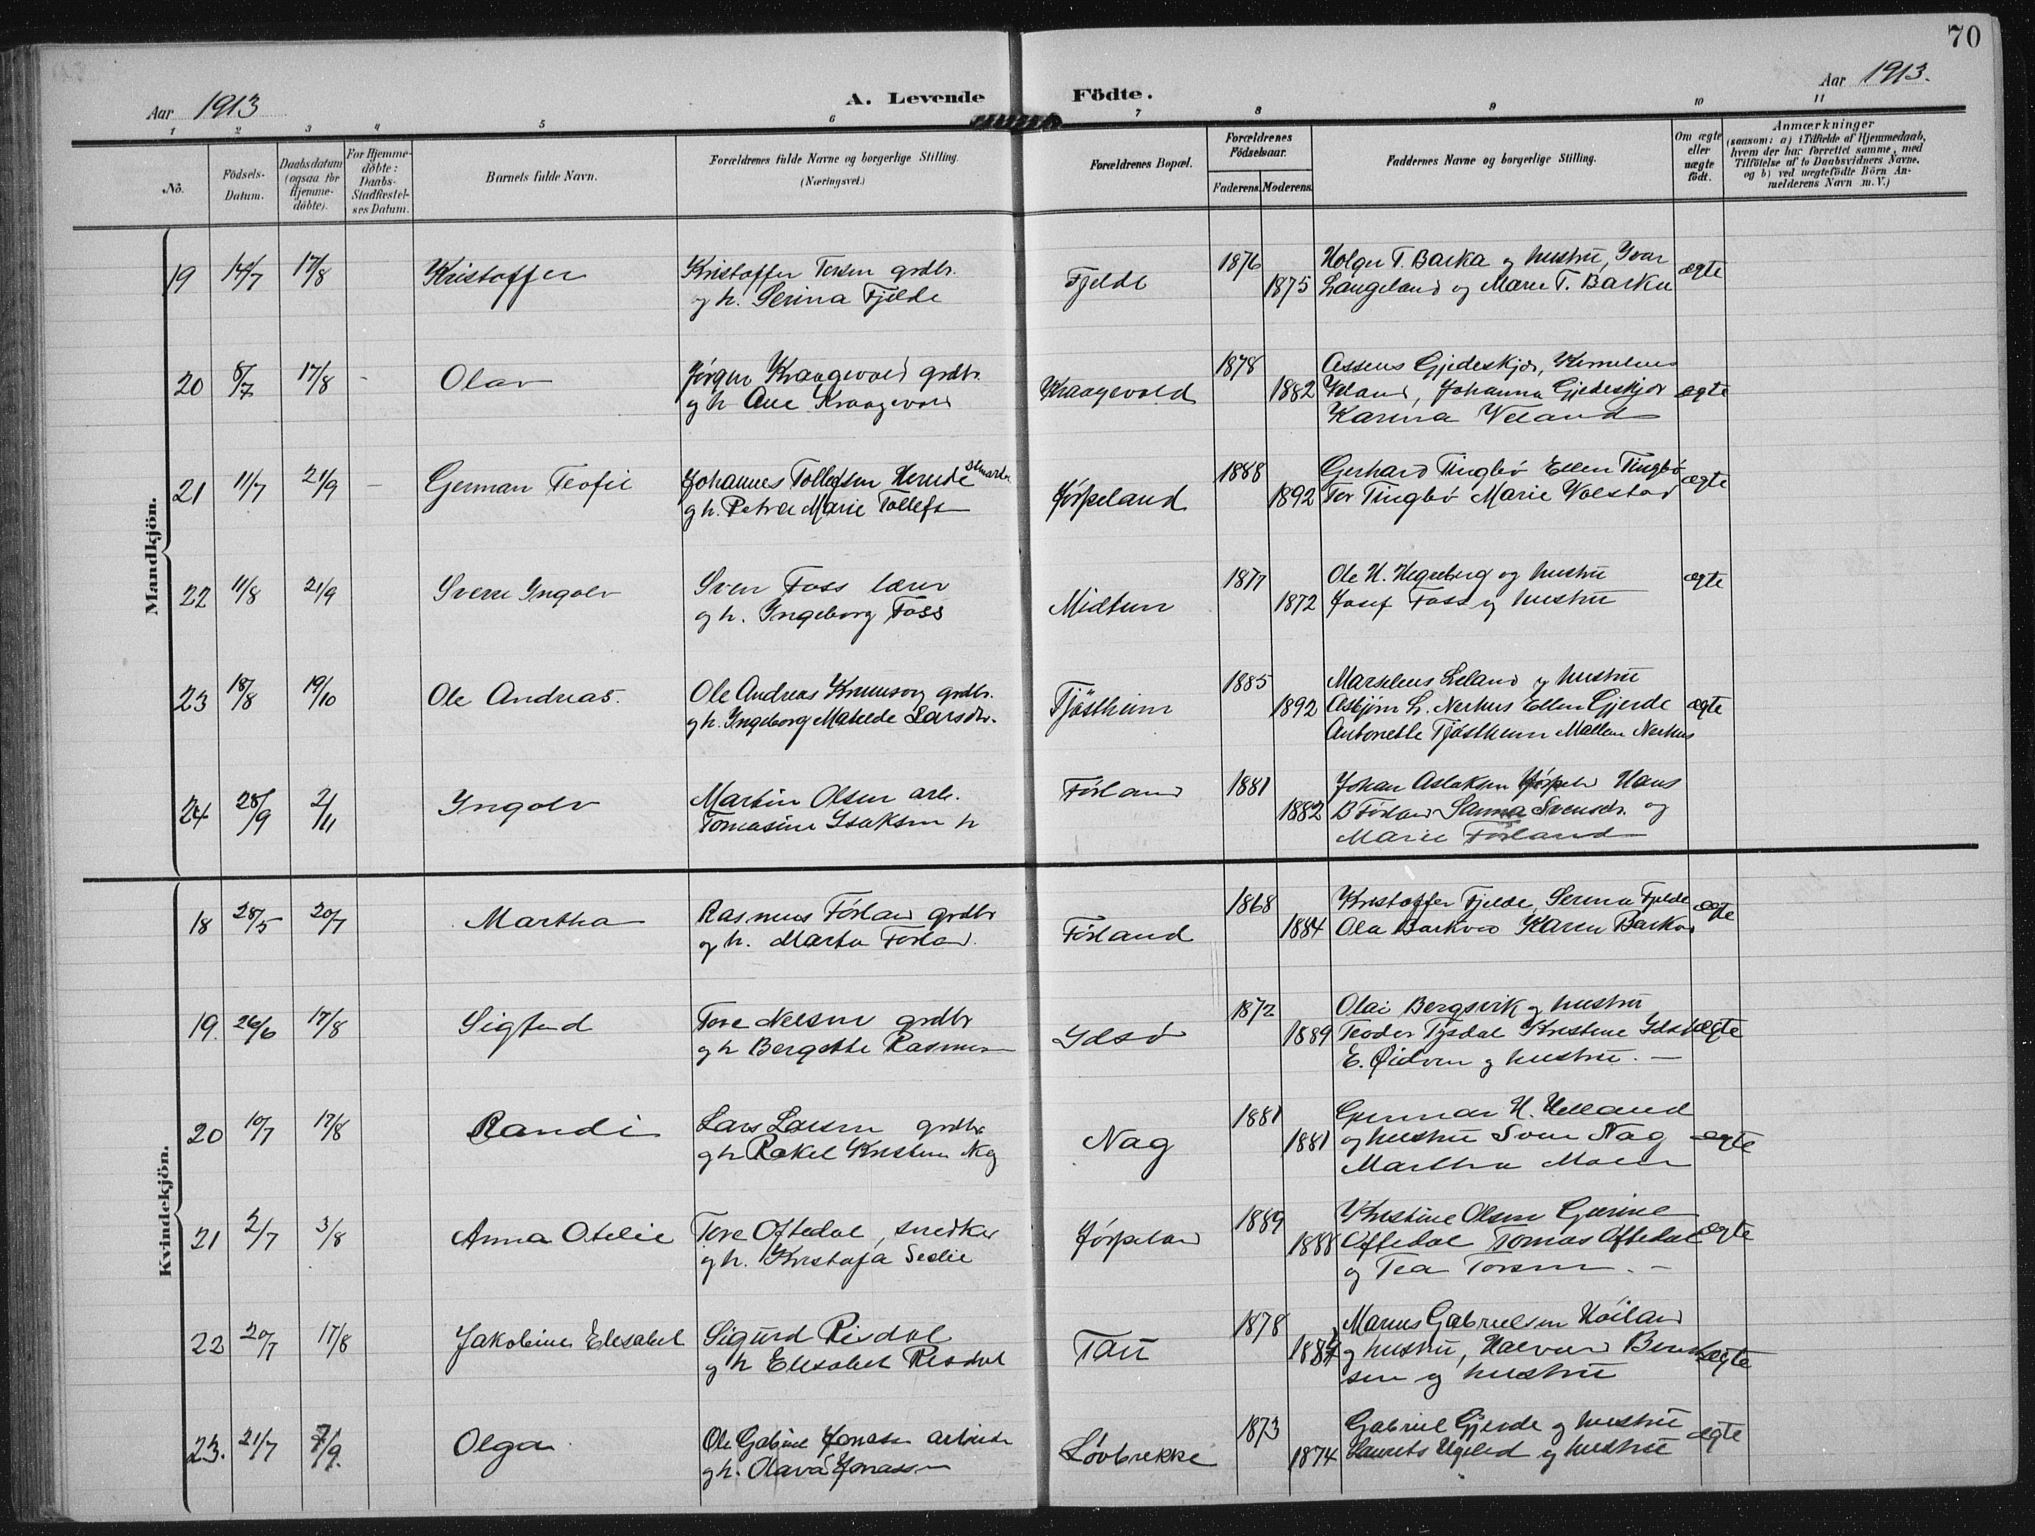 70
Aar 1913
A. Levende Födte.
Aar 1913.
1 2 3 4 5 6 7 8 9 10 11
No.
Födsels-Datum.
Daabsdatum (ogsaa for Hjemme-döbte).
For Hjemme-döbte: Daabs-Stadfæstel-ses Datum.
Barnets fulde Navn.
Forældrenes fulde Navne og borgerlige Stilling. (Næringsvei.)
Forældrenes Bopæl.
Forældrenes Födselsaar.
Faderens. Moderens.
Faddernes Navne og borgerlige Stilling.
Om ægte eller uægte födt.
Anmærkninger
(saasom: a) i Tilfælde af Hjemmedaab,
hvem der har forrettet samme, med
Tilföielse af to Daabsvidners Navne,
og b) ved uægtefödte Börn An-
melderens Navn m. V.)
Mandkjön.
19 14/7 17/8 Kristoffer
Kristoffer Torsen grdbr.
og h. Serina Fjelde
Fjelde
1876
1875
Holger T. Barka og hustru, Ivar
Langeland og Maren T. Barka
ægte
20 8/7 17/8 - Olav
Jørgen Kraagevold grdbr.
og h Kraagevold
Kraagevold
1878
1882
Assens Gjedeskjær,
Veland, Johanna Gjedeskjær
Karina Veland
ægte
21 11/7 21/9 - German Teofil
Johannes Tollefsen
og h. Petra Marie Tollefs
Jørpeland
1888
1892
Gerhard Tingbø Ellen Tingbø
Tor Tingbø Marie Volstad
ægte
22 11/8 21/9 Sverre Ingolv
Sven Foss lærer
og h. Ingeborg Foss
Midtun
1877
1872
Ole H. Hegreberg og hustru
Josef Foss og hustru
ægte
23 18/8 19/10 Ole Andreas.
Ole Andreas Knutsen grdbr.
og h. Ingeborg Matelde Larsdtr.
Tjøstheim
1885
1892
Marselius Leland og hustru
Asbjørn L. Nerhus Ellen Gjerde
Antonette Tjøstheim Mallene Nerhus
ægte
24 28/9 2/11 Ingolv
Martin Olsen arb.
Tomasine Isaksen h
Førland
1881
1882
Johan Aslaksen Jørpel Hans
B Førland Sanna Svensdr. og
Marie Førland
Kvindekjön.
18 28/5 20/7 Martha
Rasmus Førland grdbr
og h. Marta Førland.
Førland
1868
1884
Kristoffer Fjelde, Serina Fjelde
Ola Barkved Karen Barkved
ægte
19. 26/6 17/8 Sigfrid
Tore Nelsen grdbr
og h Bergette Rasmusen
Idsø
1872
1889
Olai Bergsvik og hustru
Teodor Tysdal Kristine Idsø
E. Østven og hustru. —
ægte
20 10/7 17/8 Randi
Lars Larsen grdbr
og h Rakel Kristine Nag
Nag
1881
1881
Gunnar H. Helland
og hustru Sven Nag
Martha
ægte
21 2/7 3/8 Anna Otelie
Tore Oftedal, snedker
og h. Kristofa Teslie
Jørpeland
1889
1888
Kristine Olsen Gurine
Oftedal Tomas Oftedal
og Tea Torsen. —
ægte
22 20/7 17/8 Jakobine Elesabet
Sigurd Risdal
og h Elesabet Risdal
Tau
1878
1884
Marius Gabrielsen Høiland
og hustru, Halvard Bent
sen og hustru
ægte
23. 21/7 7/9. Olga
Ole Gabriel Jonassen arbeider
og h. Olava Jonassen
Løvbrekke
1873
1874
Gabriel Gjerde og hustru
Laurits Ugelid og hustru
ægte